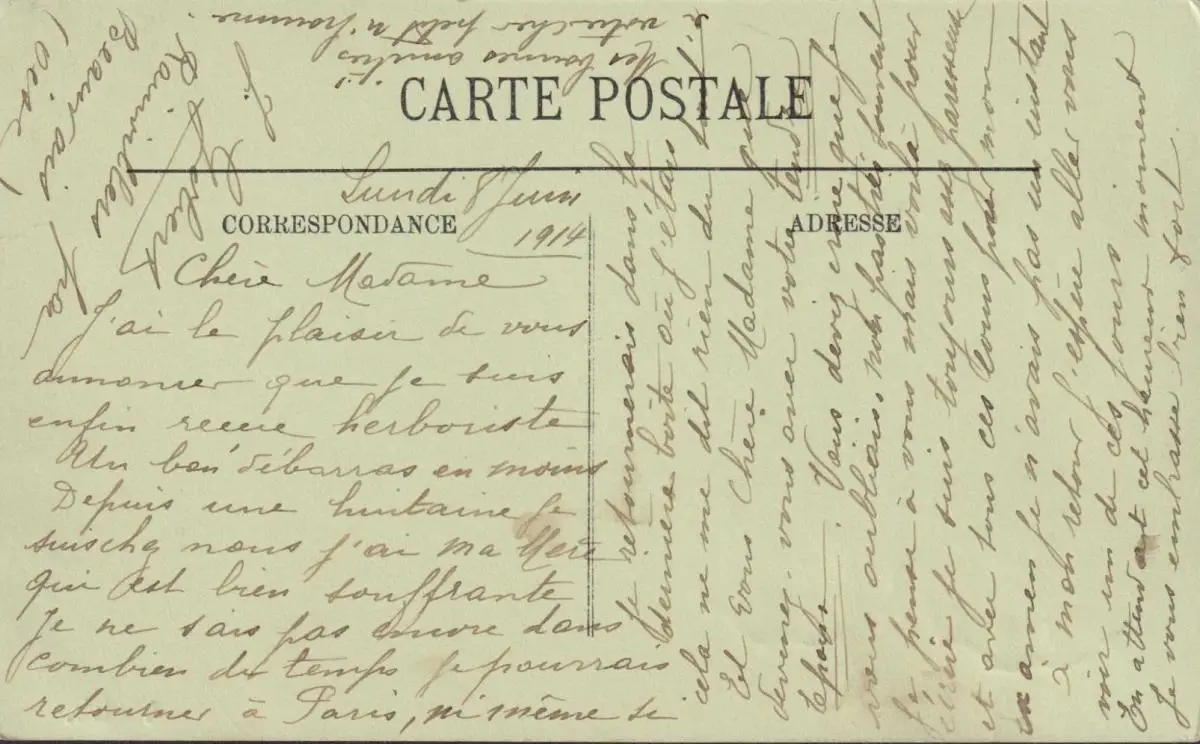 CARTE POSTALE
CORRESPONDANCE
ADRESSE
Lundi 8 Juin
1914
Chère Madame
J'ai le plaisir de vous
annoncer que je suis
enfin reçue herboriste
Un bon débarras en moins
Depuis une huitaine je
suis chez nous j'ai ma Mère
qui est bien souffrante
Je ne sais pas encore dans
combien de temps je pourrais
retourner à Paris, ni même si
je retournerais dans la
dernière boîte où j'étais
cela ne me dit rien du tout
Et vous Chère Madame que
devenez vous avec votre tendre
Epoux. Vous devez croire que je
vous oubliais, non pas très souvent
je pense à vous mais voilà pour
écrire je suis toujours aux paresseuse
et avec tous ces cours pour mon
examen je n'avais pas un instant
à mon retour j'espère aller vous
voir un de ces jours
En attendant cet heureux moment
Je vous embrasse bien fort.
Mes bonnes amitiés
à votre cher petit n'homme
J.
Rainvillers par
Beauvais
(Oise)